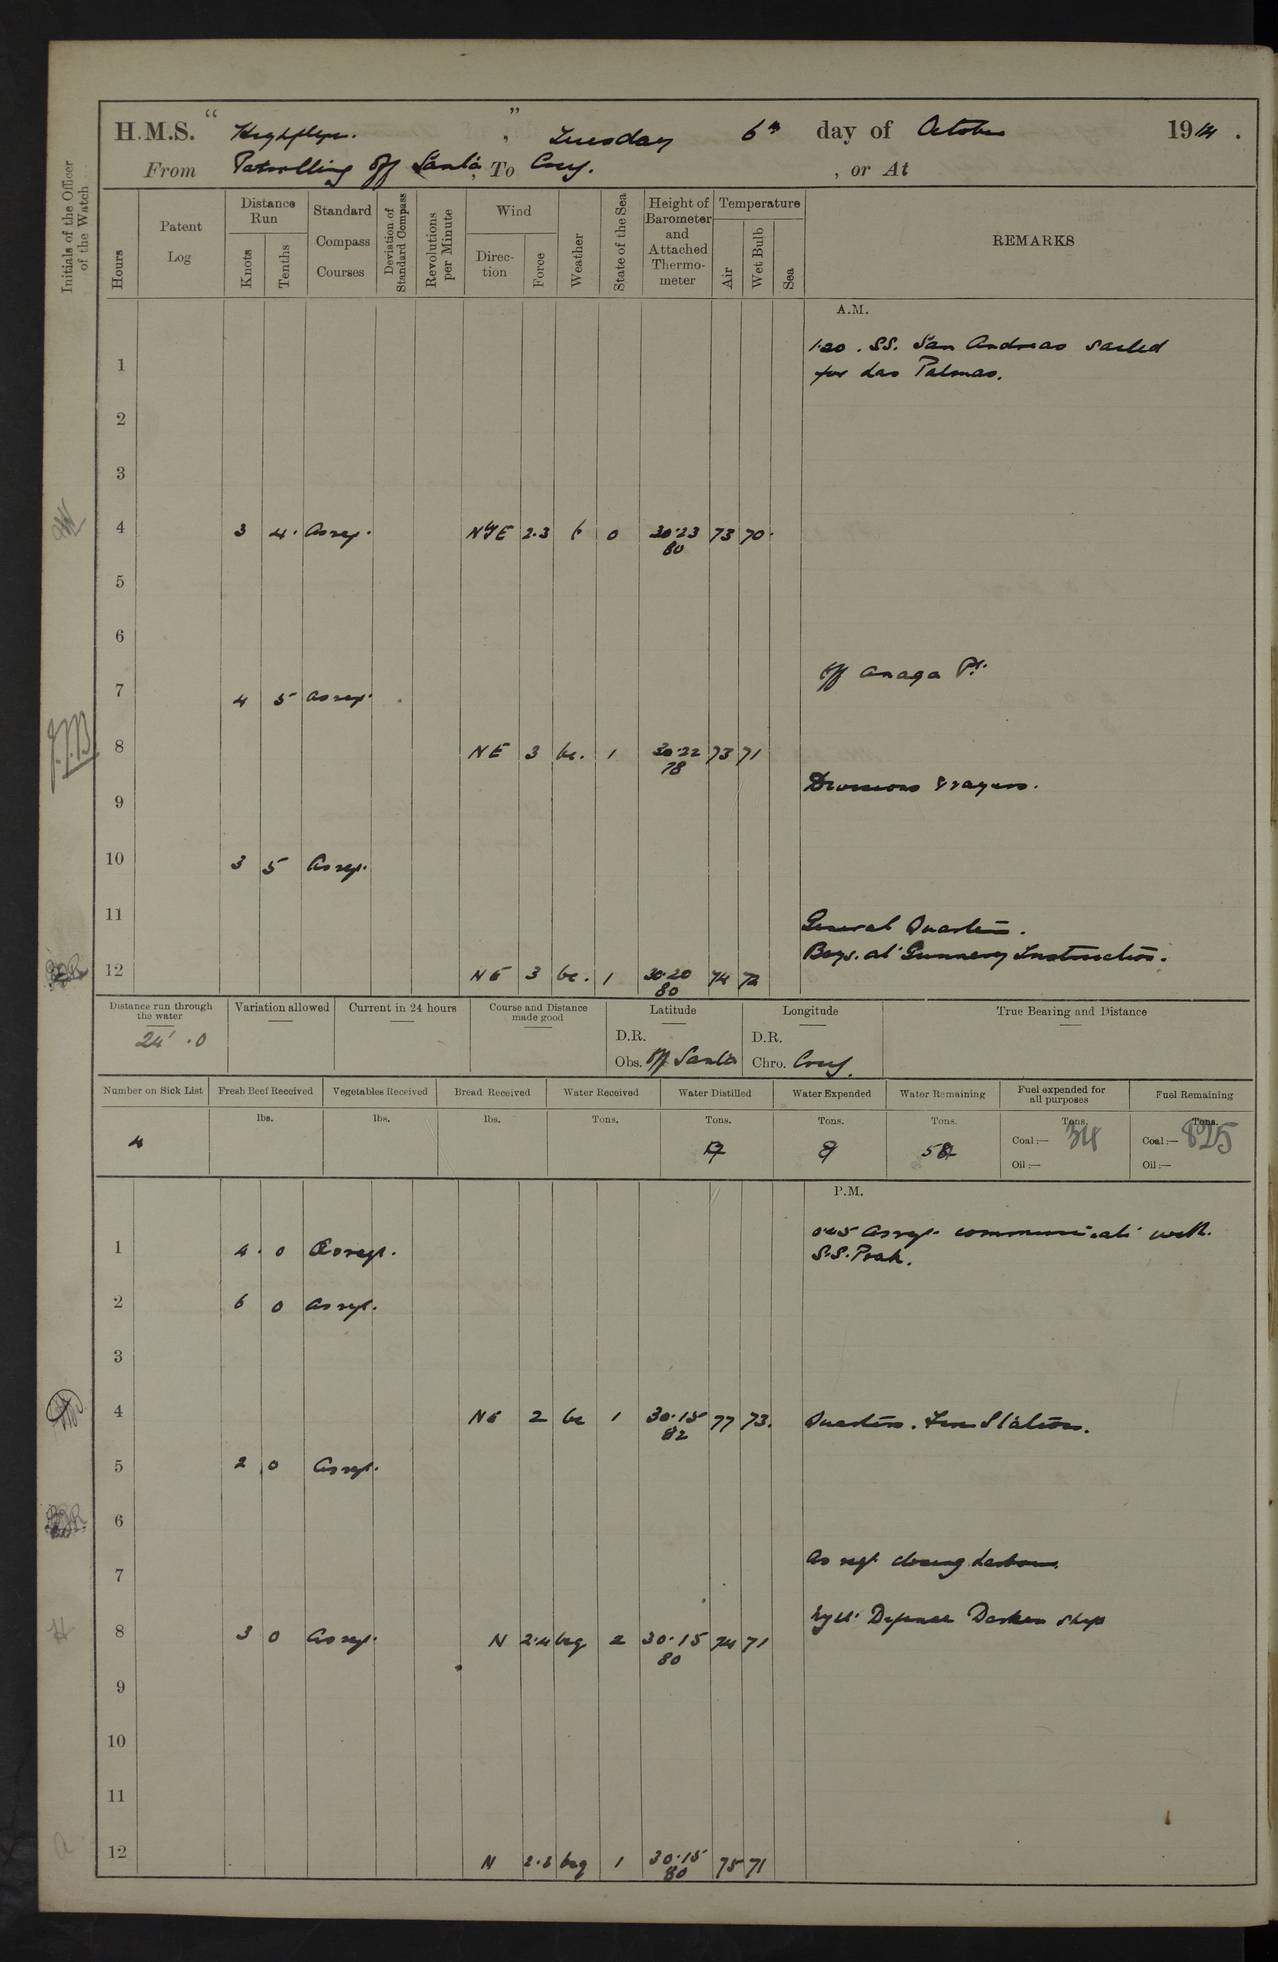 H.M.S. " Highflyer. " , Tuesday 6th day of October 1914.
From Patrolling off Santa , To Cruz. , or At
Initials of the Officer of the Watch
Hours
Patent Log
Distance Run
Knots
Tenths
Standard Compass Courses
Deviation of Standard Compass
Revolutions per Minute
Wind
Direction
Force
Weather
State of the Sea
Height of Barometer and Attached Thermometer
Temperature
Air
Wet Bulb
Sea
REMARKS
A.M.
1.20. SS. San Andreas sailed
1 for Las Palmas.
2
3
4 3 4 As req. 2.3 b 0 30.23 73 70
80
5
6
off Anaga Pt.
7 4 5 as req.
8 NE 3 bc. 1 30.22 73 71
78
Divisions Prayers.
9
10 3 5 As req.
11
General Quarters.
Boys at Gunnery Instruction.
12 NE 3 bc. 1 30.20 74 72
80
Distance run through the water
24' .0
Variation allowed
Current in 24 hours
Course and Distance made good
Latitude
D.R.
Obs. off Santa
Longitude
D.R.
Chro. Cruz.
True Bearing and Distance
Number on Sick List
4
Fresh Beef Received
lbs.
Vegetables Received
lbs.
Bread Received
lbs.
Water Received
Tons.
Water Distilled
Tons.
Water Expended
Tons.
Water Remaining
Tons.
Fuel expended for all purposes
Tons.
Coal:— 34
Oil:—
Fuel Remaining
Tons.
Coal:— 825
Oil:—
P.M.
0.45 As req. communicate with
1 4. 0 As req. S.S. Prah.
2 6 0 as req.
3
4 NE 2 bc 1 30.15 77 73. Quarters. Fire Stations.
82
5 2 0 As req.
6
As req. closing harbour.
7
Night Defence Darken Ship
8 3 0 As req. N 2.4 bcq 2 30.15 74 71
80
9
10
11
12 N 2.3 bcq 1 30.15 75 71
80